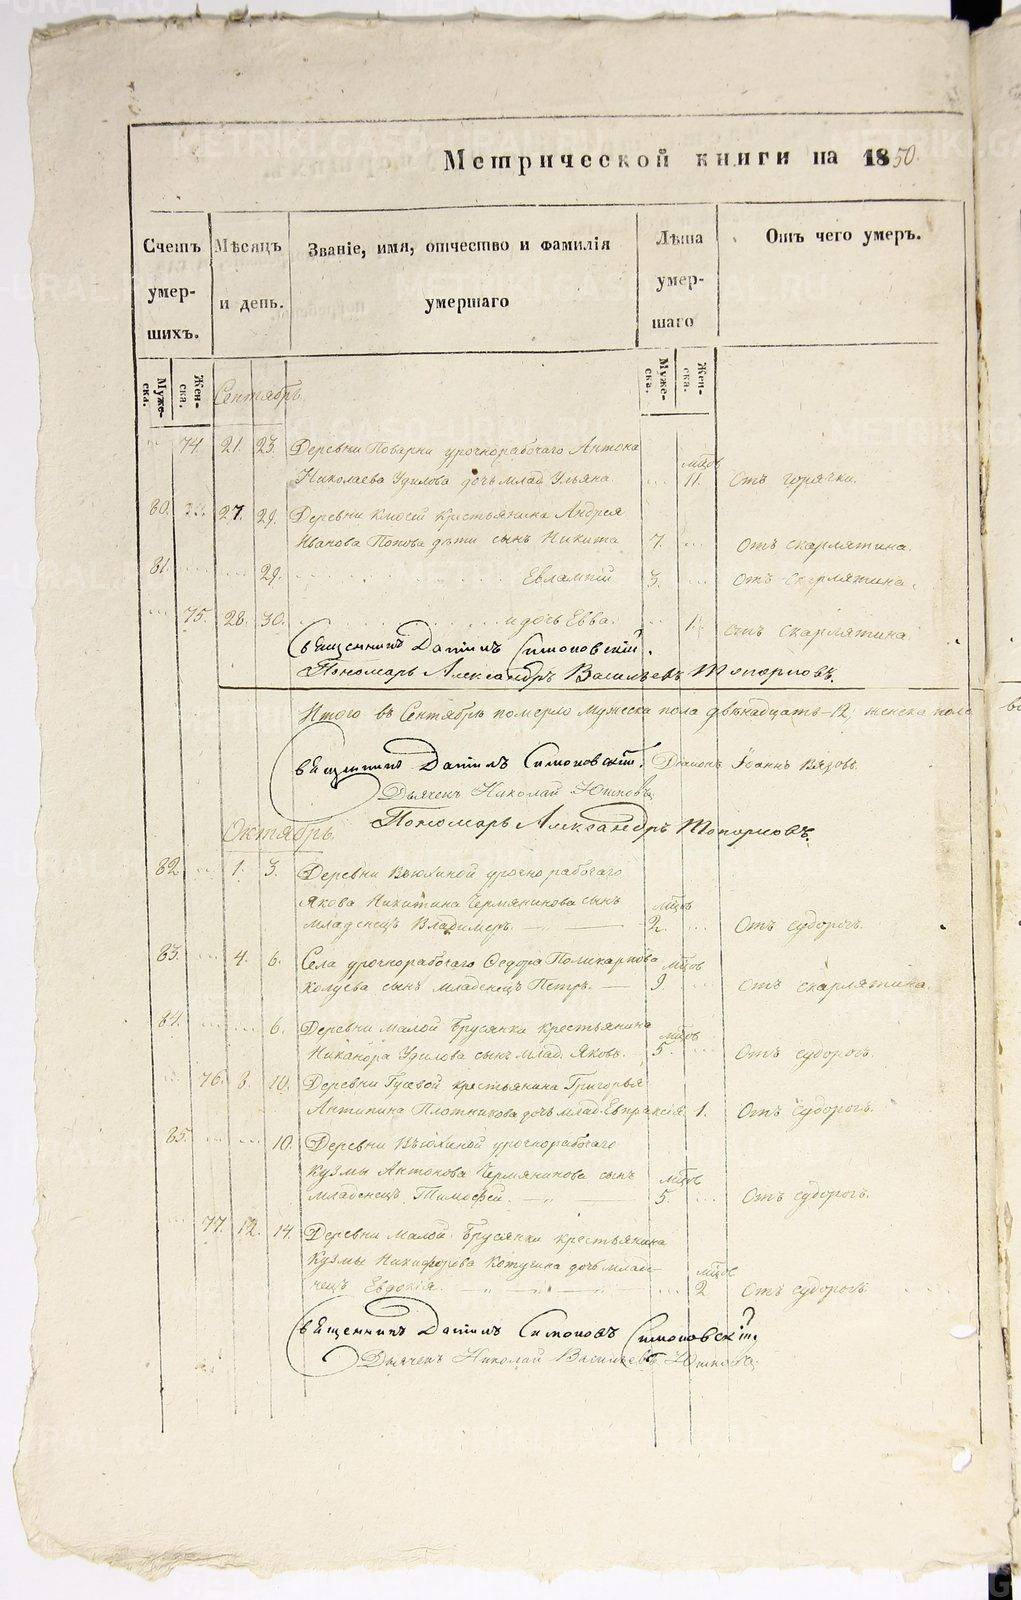 Метрической книги на 1850.
Счетъ умершихъ.
Мѣсяцъ и день.
Званіе, имя, отчество и фамилія умершаго
Лѣта умершаго
Отъ чего умеръ.
Мужеска.
Женска.
Сентябрь
Мужеска.
Женска.
74. 21. 23. Деревни Поварни урочнорабочаго Антона
мцов
Николаева Удилова дочь млад. Ульяна. 11. Отъ горячки.
80. 27. 29. Деревни Ключей крестьянина Андрея
Иванова Попова дѣти сынъ Никита 7. Отъ скарлятина.
81. 29. Евлампій 3. Отъ скарлятина.
75. 28. 30. и дочь Евва. 1. Отъ скарлятина.
Священникъ Даніилъ Симоновскій.
Пономарь Александръ Васильевъ Топорковъ.
Итого въ Сентябрѣ померло мужеска пола двѣнадцать 12, женска пола
Священникъ Даніилъ Симоновскій. Діаконъ Іоаннъ Вязовъ.
Дьячекъ Николай
Пономарь Александръ Топорковъ.
Октябрь.
82. 1. 3. Деревни Вьюхиной урочнорабочаго
Якова Никитина Чермянинова сынъ мцов
младенецъ Владимеръ. 2. Отъ судорогъ.
83. 4. 6. Села урочнорабочаго Федора Поликарпова мцов
сынъ младенецъ Петръ. 9. Отъ скарлятина.
84. 6. Деревни Малой Брусянки крестьянина мцов
Никанора Удилова сынъ млад. Яковъ. 5. Отъ судорогъ.
76. 8. 10. Деревни Гусевой крестьянина Григорья
Антипина Плотникова дочь млад. Евпраксія 1. Отъ судорогъ.
85. 10. Деревни Вьюхиной урочнорабочаго
Кузмы Антонова Чермянинова сынъ мцов
младенецъ Тимофей. 5. Отъ судорогъ.
77. 12. 14. Деревни Малой Брусянки крестьянина
Кузмы Никифорова дочь младе- мцов
нецъ Евдокія. 2 Отъ судорогъ.
Священникъ Даніилъ Симоновъ Симоновскій.
Дьячекъ Николай Васильевъ